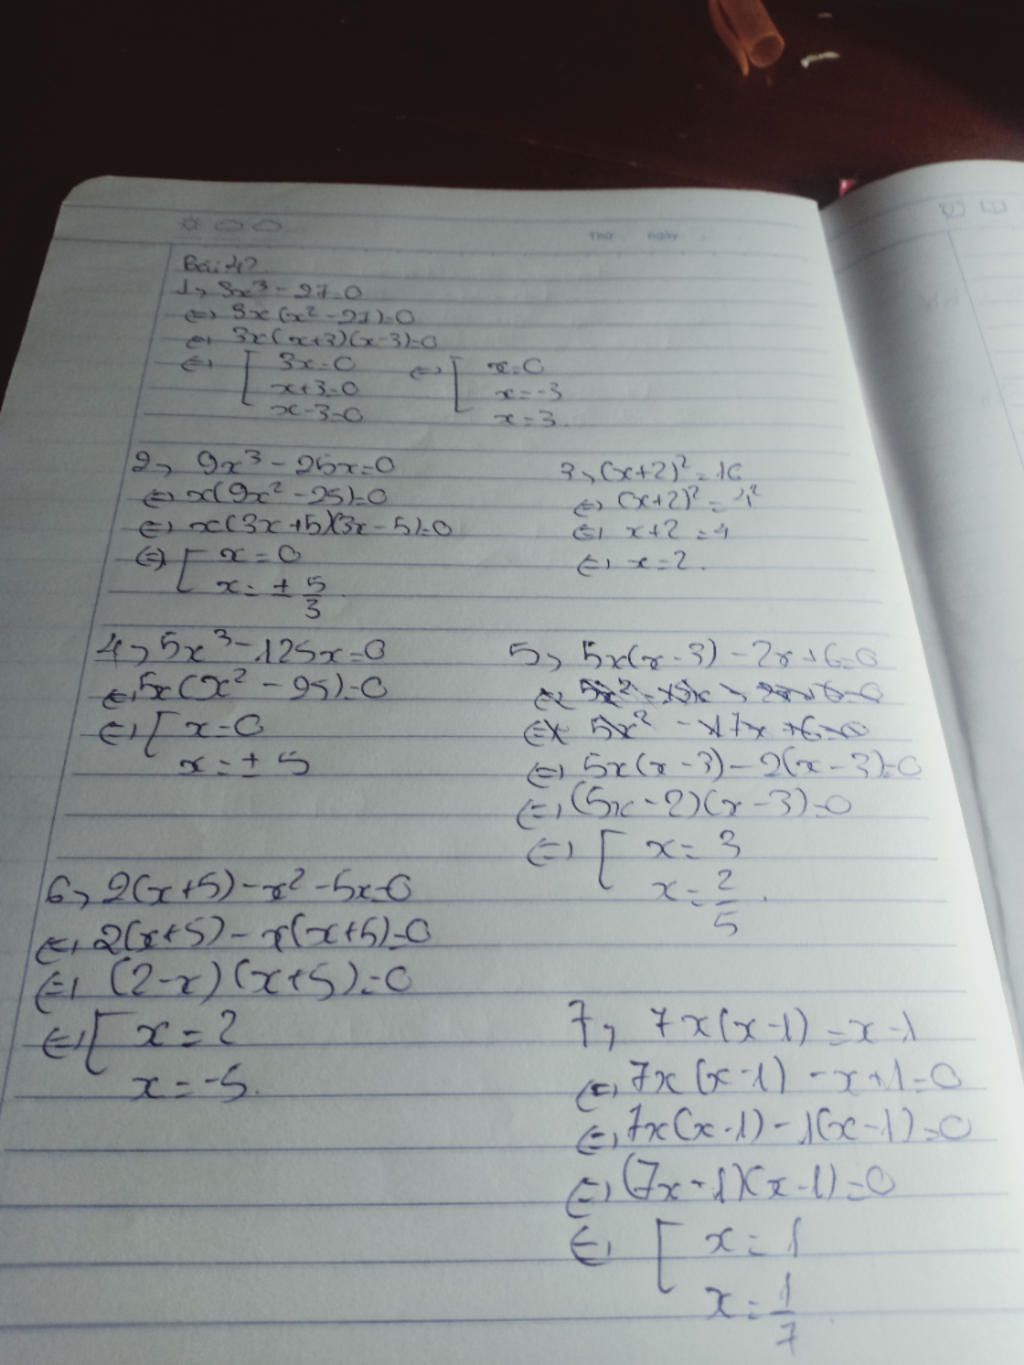 Thứ Ngày
Bài 42
1, 3x³ - 27=0
⇔ 3x(x² - 27)=0
⇔ 3x(x+3)(x-3)=0
⇔ [ 3x=0 ⇔ [ x=0
x+3=0 x=-3
x-3=0 x=3.
2, 9x³ - 25x=0
⇔ x(9x² - 25)=0
⇔ x(3x+5)(3x-5)=0
⇔ [ x=0
x=± 5/3.
3, (x+2)²=16
⇔ (x+2)²=4²
⇔ x+2=4
⇔ x=2.
4, 5x³ - 125x=0
⇔ 5x(x² - 25)=0
⇔ [ x=0
x=± 5
5, 5x(x-3) - 2x+6=0
⇔ 5x² - 15x - 2x+6=0
⇔ 5x² - 17x +6=0
⇔ 5x(x-3) - 2(x-3)=0
⇔ (5x-2)(x-3)=0
⇔ [ x=3
x=2/5.
6, 2(x+5) - x² - 5x=0
⇔ 2(x+5) - x(x+5)=0
⇔ (2-x)(x+5)=0
⇔ [ x=2
x=-5.
7, 7x(x-1)=x-1
⇔ 7x(x-1) - x+1=0
⇔ 7x(x-1) - 1(x-1)=0
⇔ (7x-1)(x-1)=0
⇔ [ x=1
x=1/7